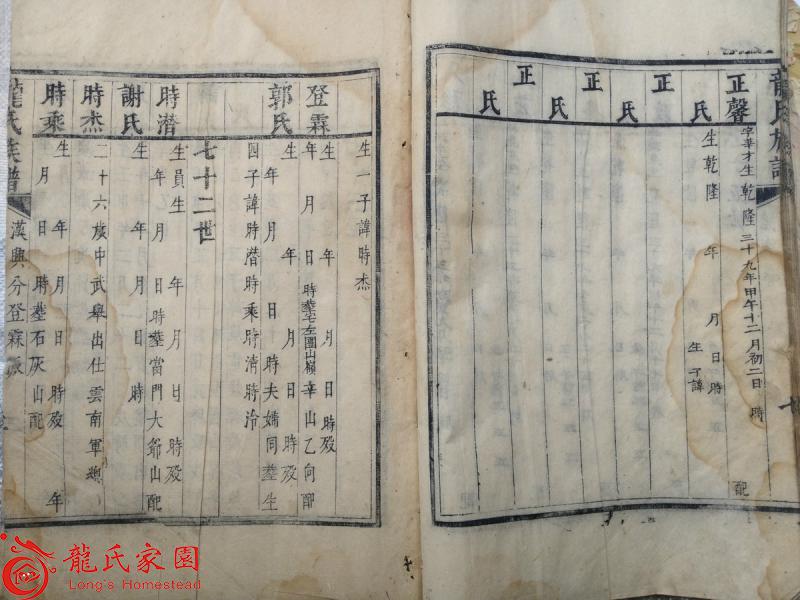 龍氏族譜
正馨 字華才生乾隆三十九年甲午十二月初二日 時 配
氏 生乾隆 年 月 日 時 生 子諱
正
氏
正
氏
正
氏
正
氏
生一子諱時杰
登霖 生 年 月 日 時殁
年 月 日 時葬宅左園山嶺辛山乙向配
郭氏 生 年 月 日 時殁
年 月 日 時夫婦同葬生
四子諱時潛時乘時清時泠
七十二世
時潛 生員生 年 月 日 時殁
年 月 日 時葬當門大爺山配
謝氏 生 年 月 日 時
時杰 二十六歲中武舉出仕雲南軍總
時乘 生 年 月 日 時殁 年
月 日 時葬石灰山配
龍氏族譜 漢興分登霖派
龍氏家園
Long's Homestead